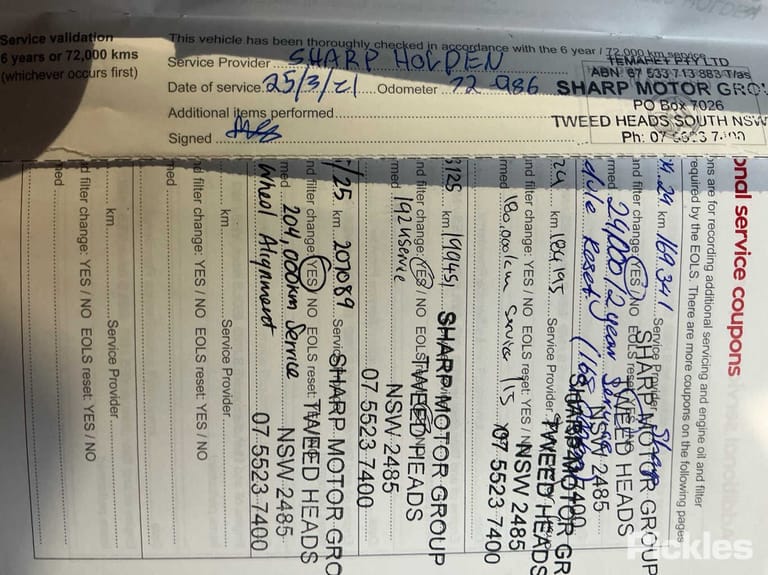 Service validation
6 years or 72,000 kms
(whichever occurs first)
This vehicle has been thoroughly checked in accordance with the 6 year / 72,000 km service
Service Provider SHARP HOLDEN
Date of service 25/3/21 Odometer 72 986
Additional items performed
Signed
TEMAHET PTY LTD
ABN 67 533 713 883 T/as
SHARP MOTOR GROU
PO Box 7026
TWEED HEADS SOUTH NSW
Ph: 07
onal service coupons
ons are for recording additional servicing and engine oil and filter
required by the EOLS. There are more coupons on the following pages
24 km 169,341 Service Provider Sharp
nd filter change: YES / NO EOLS reset: YES / NO
rmed 24,000/2 year Service
dule Reset (168
SHARP MOTOR GROUP
TWEED HEADS
NSW 2485
24 km 184195 Service Provider
nd filter change: YES / NO EOLS reset: YES / NO
rmed 180,000km service
SHARP MOTOR GR
TWEED HEADS
NSW 2485
07 5523 7400
3/25 km 199451
nd filter change: YES / NO EOLS
rmed 192K service
SHARP MOTOR GROUP
TWEED HEADS
NSW 2485
07 5523 7400
/25 km 207089 Service
nd filter change: YES / NO EOLS reset:
med 204,000km Service
Wheel Alignment
SHARP MOTOR GRO
TWEED HEADS
NSW 2485
07 5523 7400
km Service Provider
nd filter change: YES / NO EOLS reset: YES / NO
med
km Service Provider
d filter change: YES / NO EOLS reset: YES / NO
med
Pickles